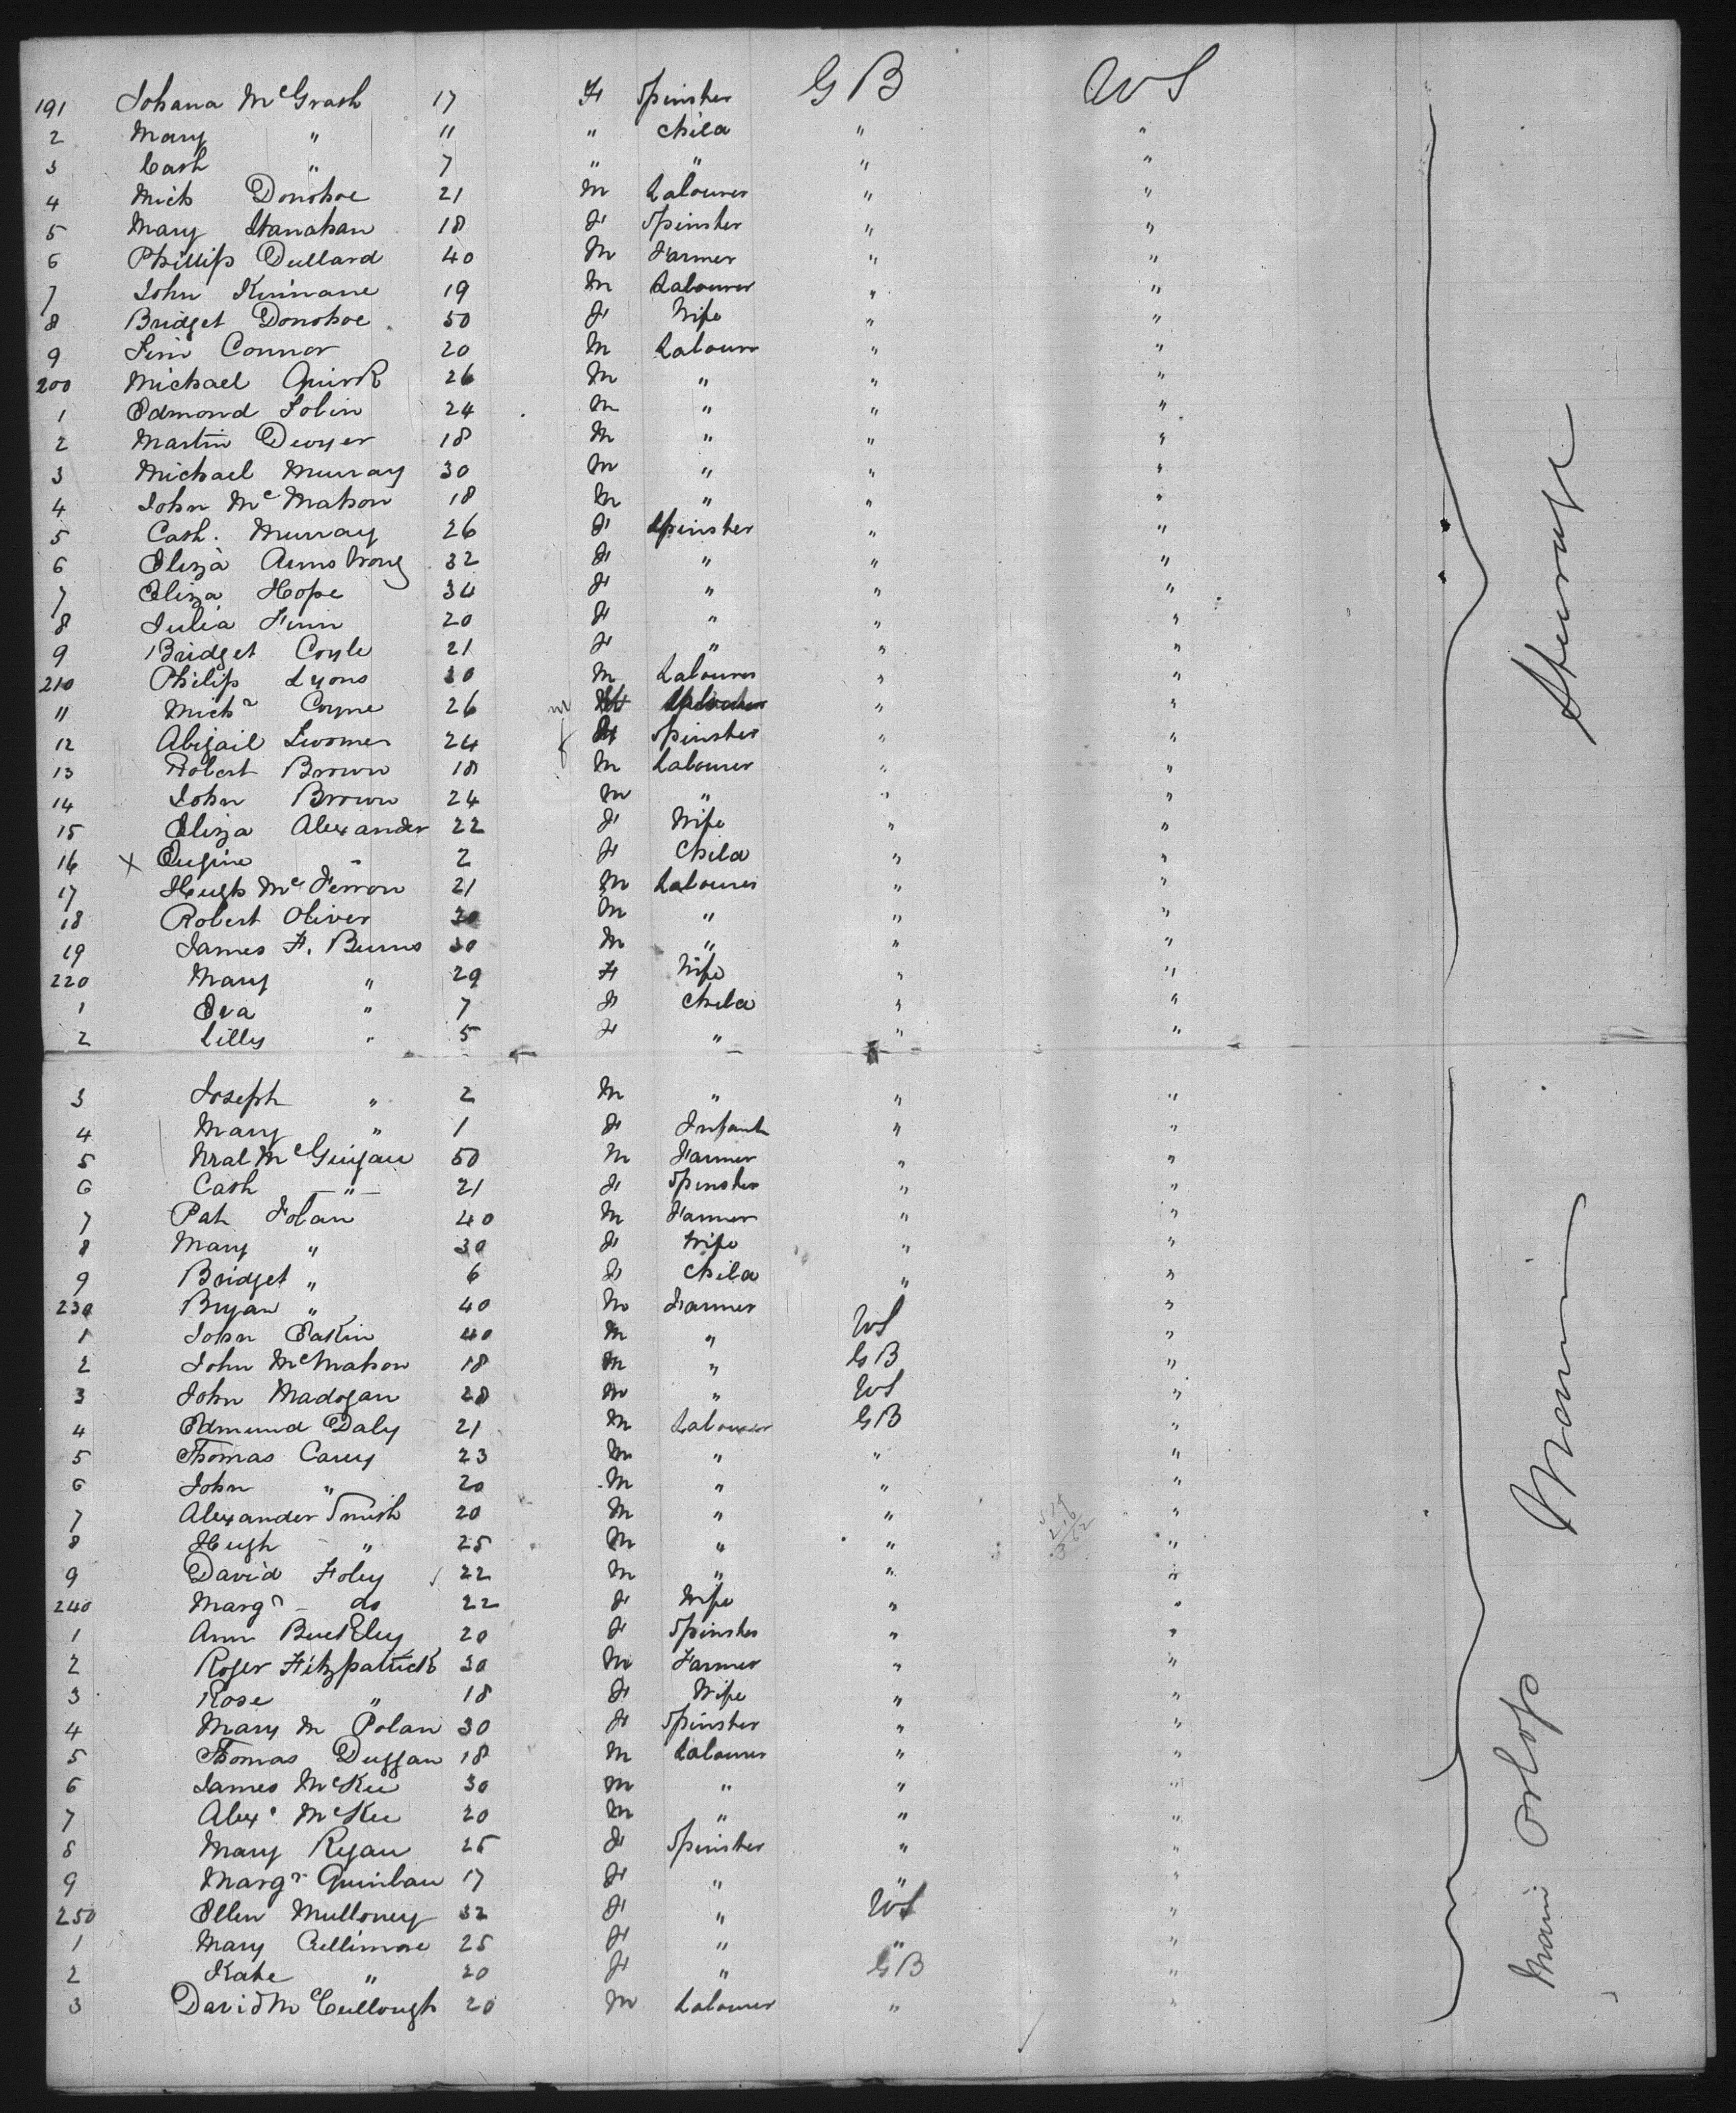 191 Johana McGrath 17 F Spinster GB US
2 Mary " 11 " Child " "
3 Cath " 7 " " " "
4 Mich Donohoe 21 M Labourer " "
5 Mary Hanahan 18 F Spinster " "
6 Phillip Dullard 40 M Farmer " "
7 John Kinnane 19 M Labourer " "
8 Bridget Donohoe 50 F Wife " "
9 Connor 20 M Labourer " "
200 Michael Quirk 26 M " " "
1 Edmond Tobin 24 M " " "
2 Martin Dwyer 18 M " " "
3 Michael Murray 30 M " " "
4 John McMahon 18 M " " "
5 Cath. Murray 26 F Spinster " "
6 Eliza Armstrong 32 F " " "
7 Eliza Hope 34 F " " "
8 Julia Finn 20 F " " "
9 Bridget Coyle 21 F " " "
210 Philip Lyons 30 M Labourer " "
11 Michl Coyne 26 m " "
12 Abigail Twomer 24 f Spinster " "
13 Robert Brown 18 M Labourer " "
14 John Brown 24 M " " "
15 Eliza Alexander 22 F Wife " "
16 X Eugine " 2 F Child " "
17 Hugh McFerron 21 M Labourer " "
18 Robert Oliver 30 M " " "
19 James F. Burns 30 M " " "
220 Mary " 29 F Wife " "
1 Eva " 7 F Child " "
2 Lilly " 5 F " " "
Steerage
3 Joseph " 2 M " " "
4 Mary " 1 F Infant " "
5 McGuigan 50 M Farmer " "
6 Cath " 21 F Spinster " "
7 Pat Folan 40 M Farmer " "
8 Mary " 30 F Wife " "
9 Bridget " 6 F Child " "
230 Bryan " 40 M Farmer " "
1 John Eakin 40 M " US "
2 John McMahon 18 M " GB "
3 John Madogan 28 M " US "
4 Edmund Daly 21 M Labourer GB "
5 Thomas Carey 23 M " " "
6 John " 20 M " " "
7 Alexander Smith 20 M " " "
8 Hugh " 25 M " " "
9 David Foley 22 M " " "
240 Margt do 22 F Wife " "
1 Ann Buckley 20 F Spinster " "
2 Roger Fitzpatrick 30 M Farmer " "
3 Rose " 18 F Wife " "
4 Mary M Polan 30 F Spinster " "
5 Thomas Duggan 18 M Labourer " "
6 James McKee 30 M " " "
7 Alex. McKee 20 M " " "
8 Mary Ryan 25 F Spinster " "
9 Margt Quinlan 17 F " " "
250 Ellen Mulloney 32 F " US "
1 Mary Cullimore 25 F " " "
2 Kate " 20 F " GB "
3 David McCullough 20 M Labourer " "
Main
Main Orlop